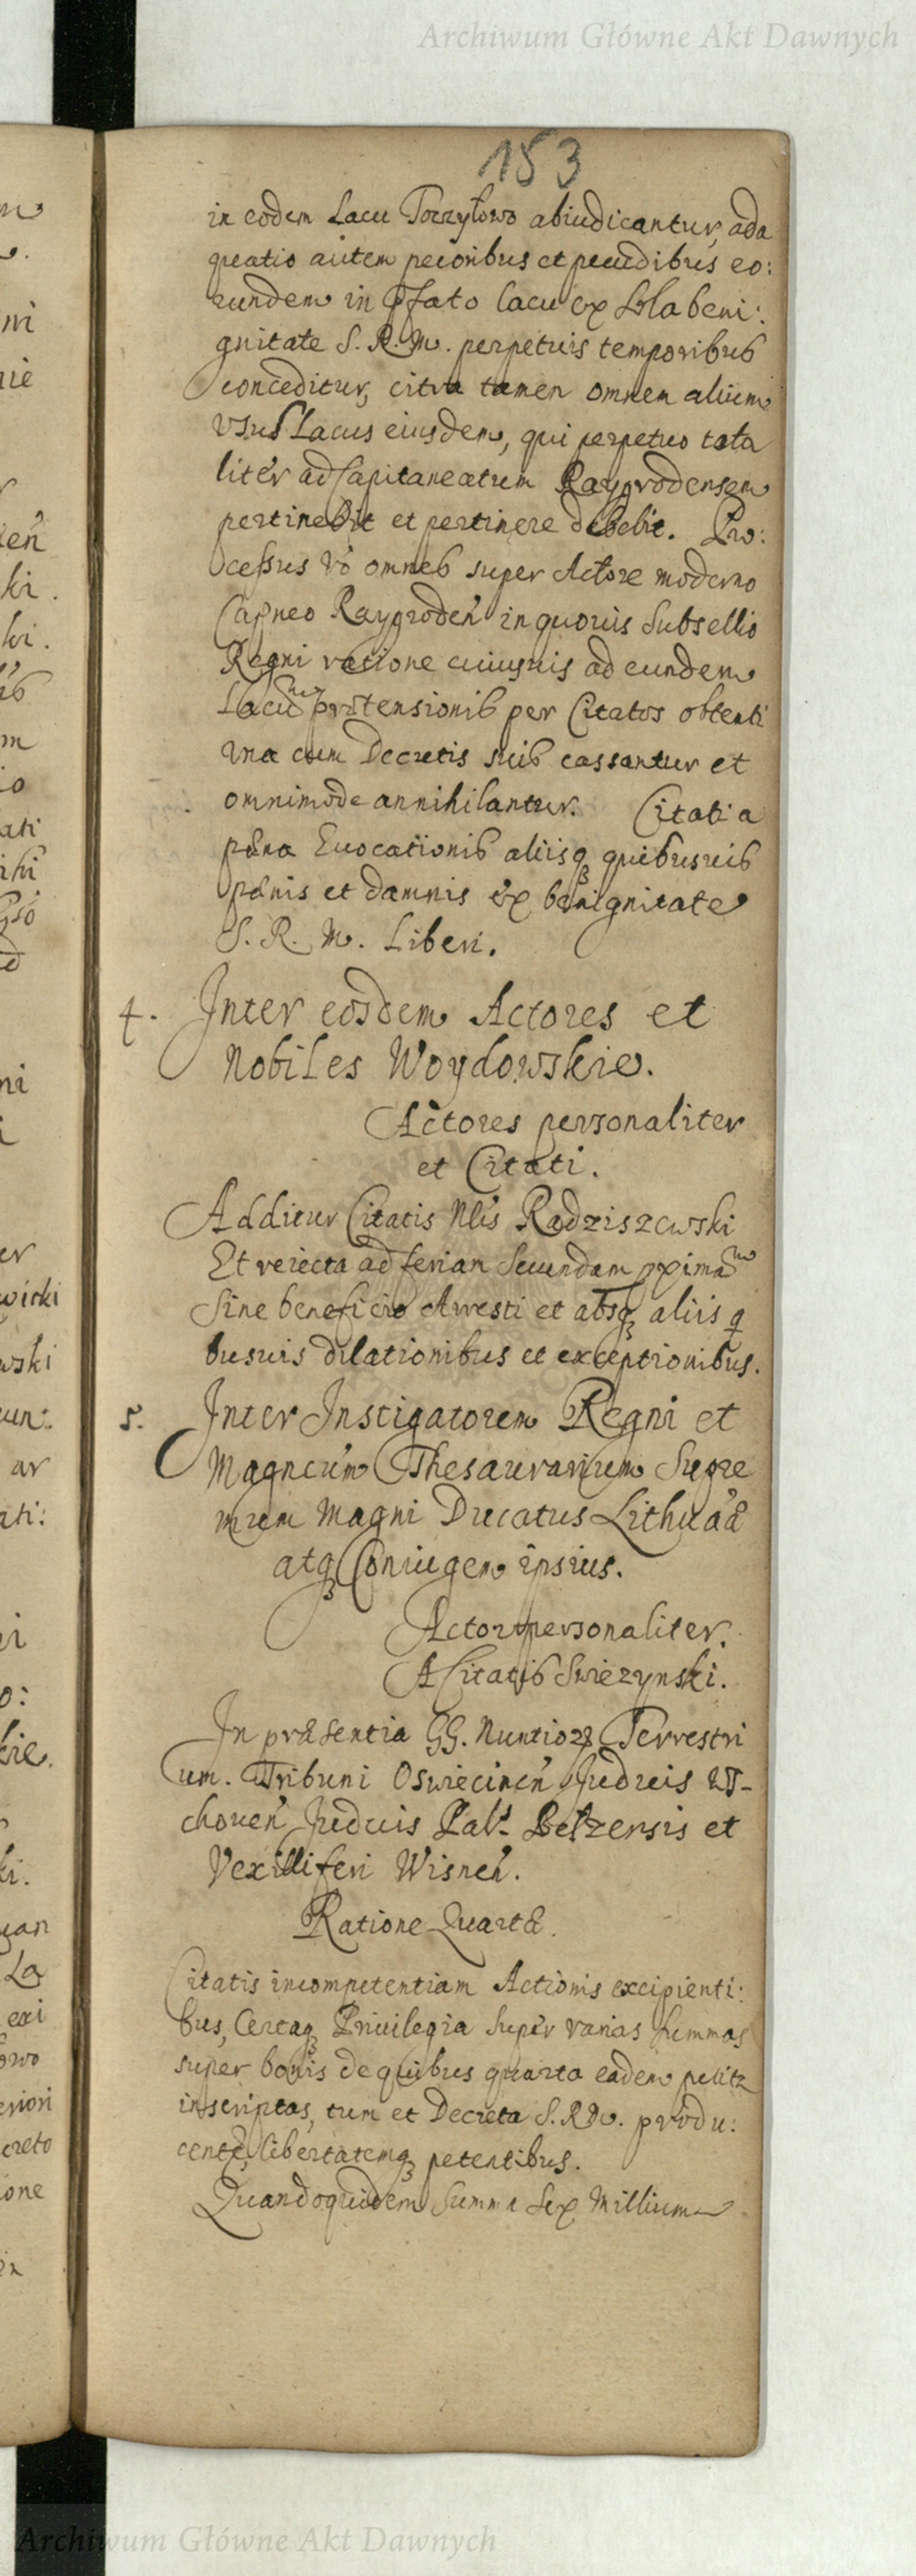 Archiwum Główne Akt Dawnych
153
in eodem Lacu Toczyłowo abiudicantur, ada
quatio autem pecoribus et pecudibus eo:
rundem in pfato lacu ex sola beni:
gnitate S. R. M. perpetuis temporibus
conceditur, citra tamen omnem alium
usus Lacus eiusdem, qui perpetuo tota
liter ad Capitaneatum Raygrodensem
pertinebit et pertinere debebit. Pro:
cessus vo omnes super Actore moderno
Capneo Raygroden in quovis Subsellio
Regni ratione cuiusvis ad eundem
Lacum prætensionis per Citatos obtenti
una cum Decretis suis cassantur et
omnimode annihilantur. Citati a
pæna Evocationis aliisq quibusvis
pænis et damnis ex benignitate
S. R. M. Liberi.
4. Inter eosdem Actores et
Nobiles Woydowskie.
Actores personaliter
et Citati.
Additur Citatis Nlis Radziszewski
Et reiecta ad feriam Secundam pximam
Sine beneficio Arresti et absq aliis q
busvis dilationibus et exceptionibus.
5. Inter Instigatorem Regni et
Magncum Thesaurarium Supre
mum Magni Ducatus Lithuaæ
atq Coniugem ipsius.
Actor personaliter.
A Citatis Swiezynski.
In præsentia GG. Nuntioz Terrestri
um. Tribuni Oswiecimen Judicis W-
choven Judicis Palt Belzensis et
Vexilliferi Wisnen.
Ratione Quartæ.
Citatis incompetentiam Actionis excipienti:
bus, Certaq Privilegia super varias summas
super bonis de quibus quarta eadem petitz
inscriptas, tum et Decreta S. R M. produ:
centq libertatemq petentibus.
Quandoquidem Summa Sex Millium
Archiwum Główne Akt Dawnych